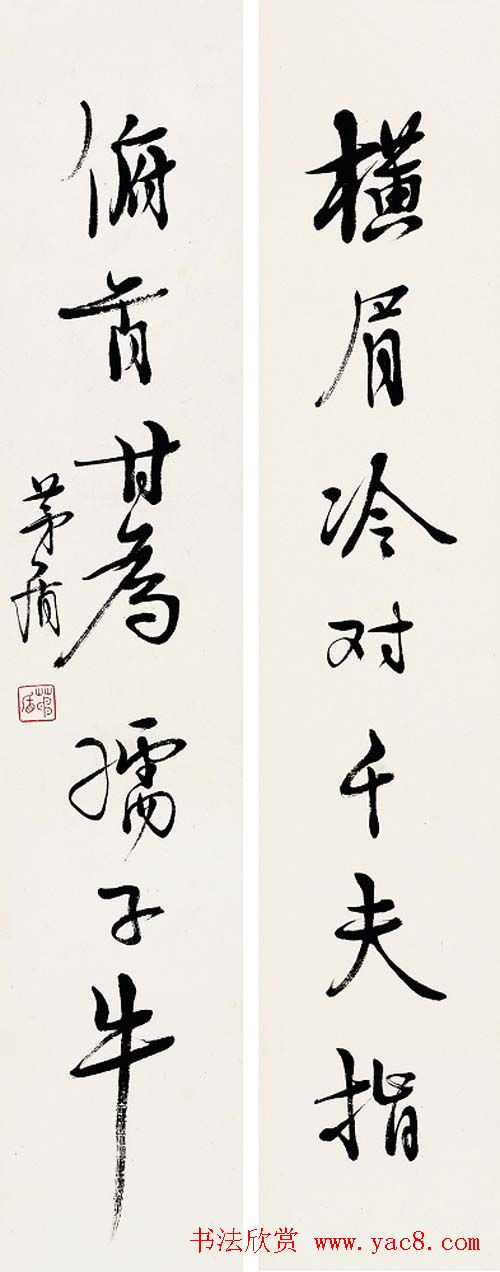 横眉冷对千夫指
俯首甘為孺子牛
茅盾
茅盾
书法欣赏 www.yac8.com